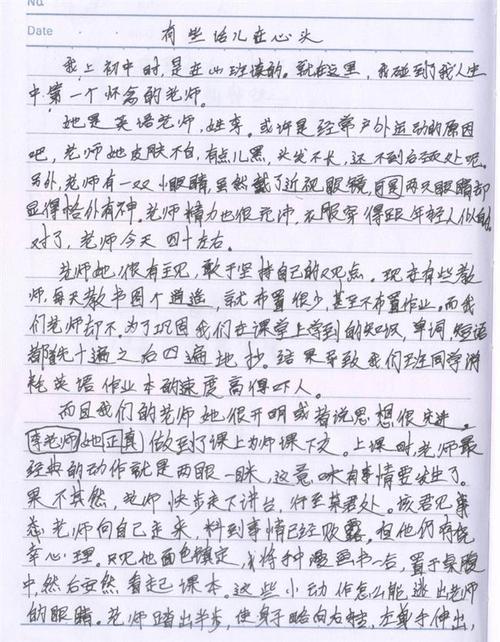 No.
Date
有些话儿在心头
我上初中时,是在山班读的。就在这里,我碰到了我人生
中第一个怀念的老师。
她是英语老师,姓李。或许是经常户外运动的原因
吧,老师她皮肤不白,有点儿黑,头发不长,还不到后颈处呢。
另外,老师有一双小眼睛,虽然戴了近视眼镜,但两只眼睛却
显得恰外有神。老师精力也很充沛,衣服穿得跟年轻人似的。
对了,老师今天四十左右。
老师她很有主见,敢于坚持自己的观点。现在有些教
师,每天教书图个逍遥,就布置很少,甚至不布置作业。而我
们老师却不。为了巩固我们在课堂上学到的知识,单词,短语
都先十遍之后四遍地抄。结果导致我们班同学消
耗英语作业本的速度高得吓人。
而且我们的老师她很开明或者说思想很先进。
李老师她正真做到了课上为师课下友。上课时,老师最
经典的动作就是两眼一眯,这竟味有事情要发生了。
果不其然,老师快步走下讲台,行至某君处。该君见
老师向自己走来,料到事情已经败露。但他仍有侥
幸心理。只见他面色镇定,将手中漫画书一合,置于桌腹
中,然后安然看起课本。这些小动作怎么能逃出老师
的眼睛。老师踏出半步,使身子略向右倾,左手伸出,